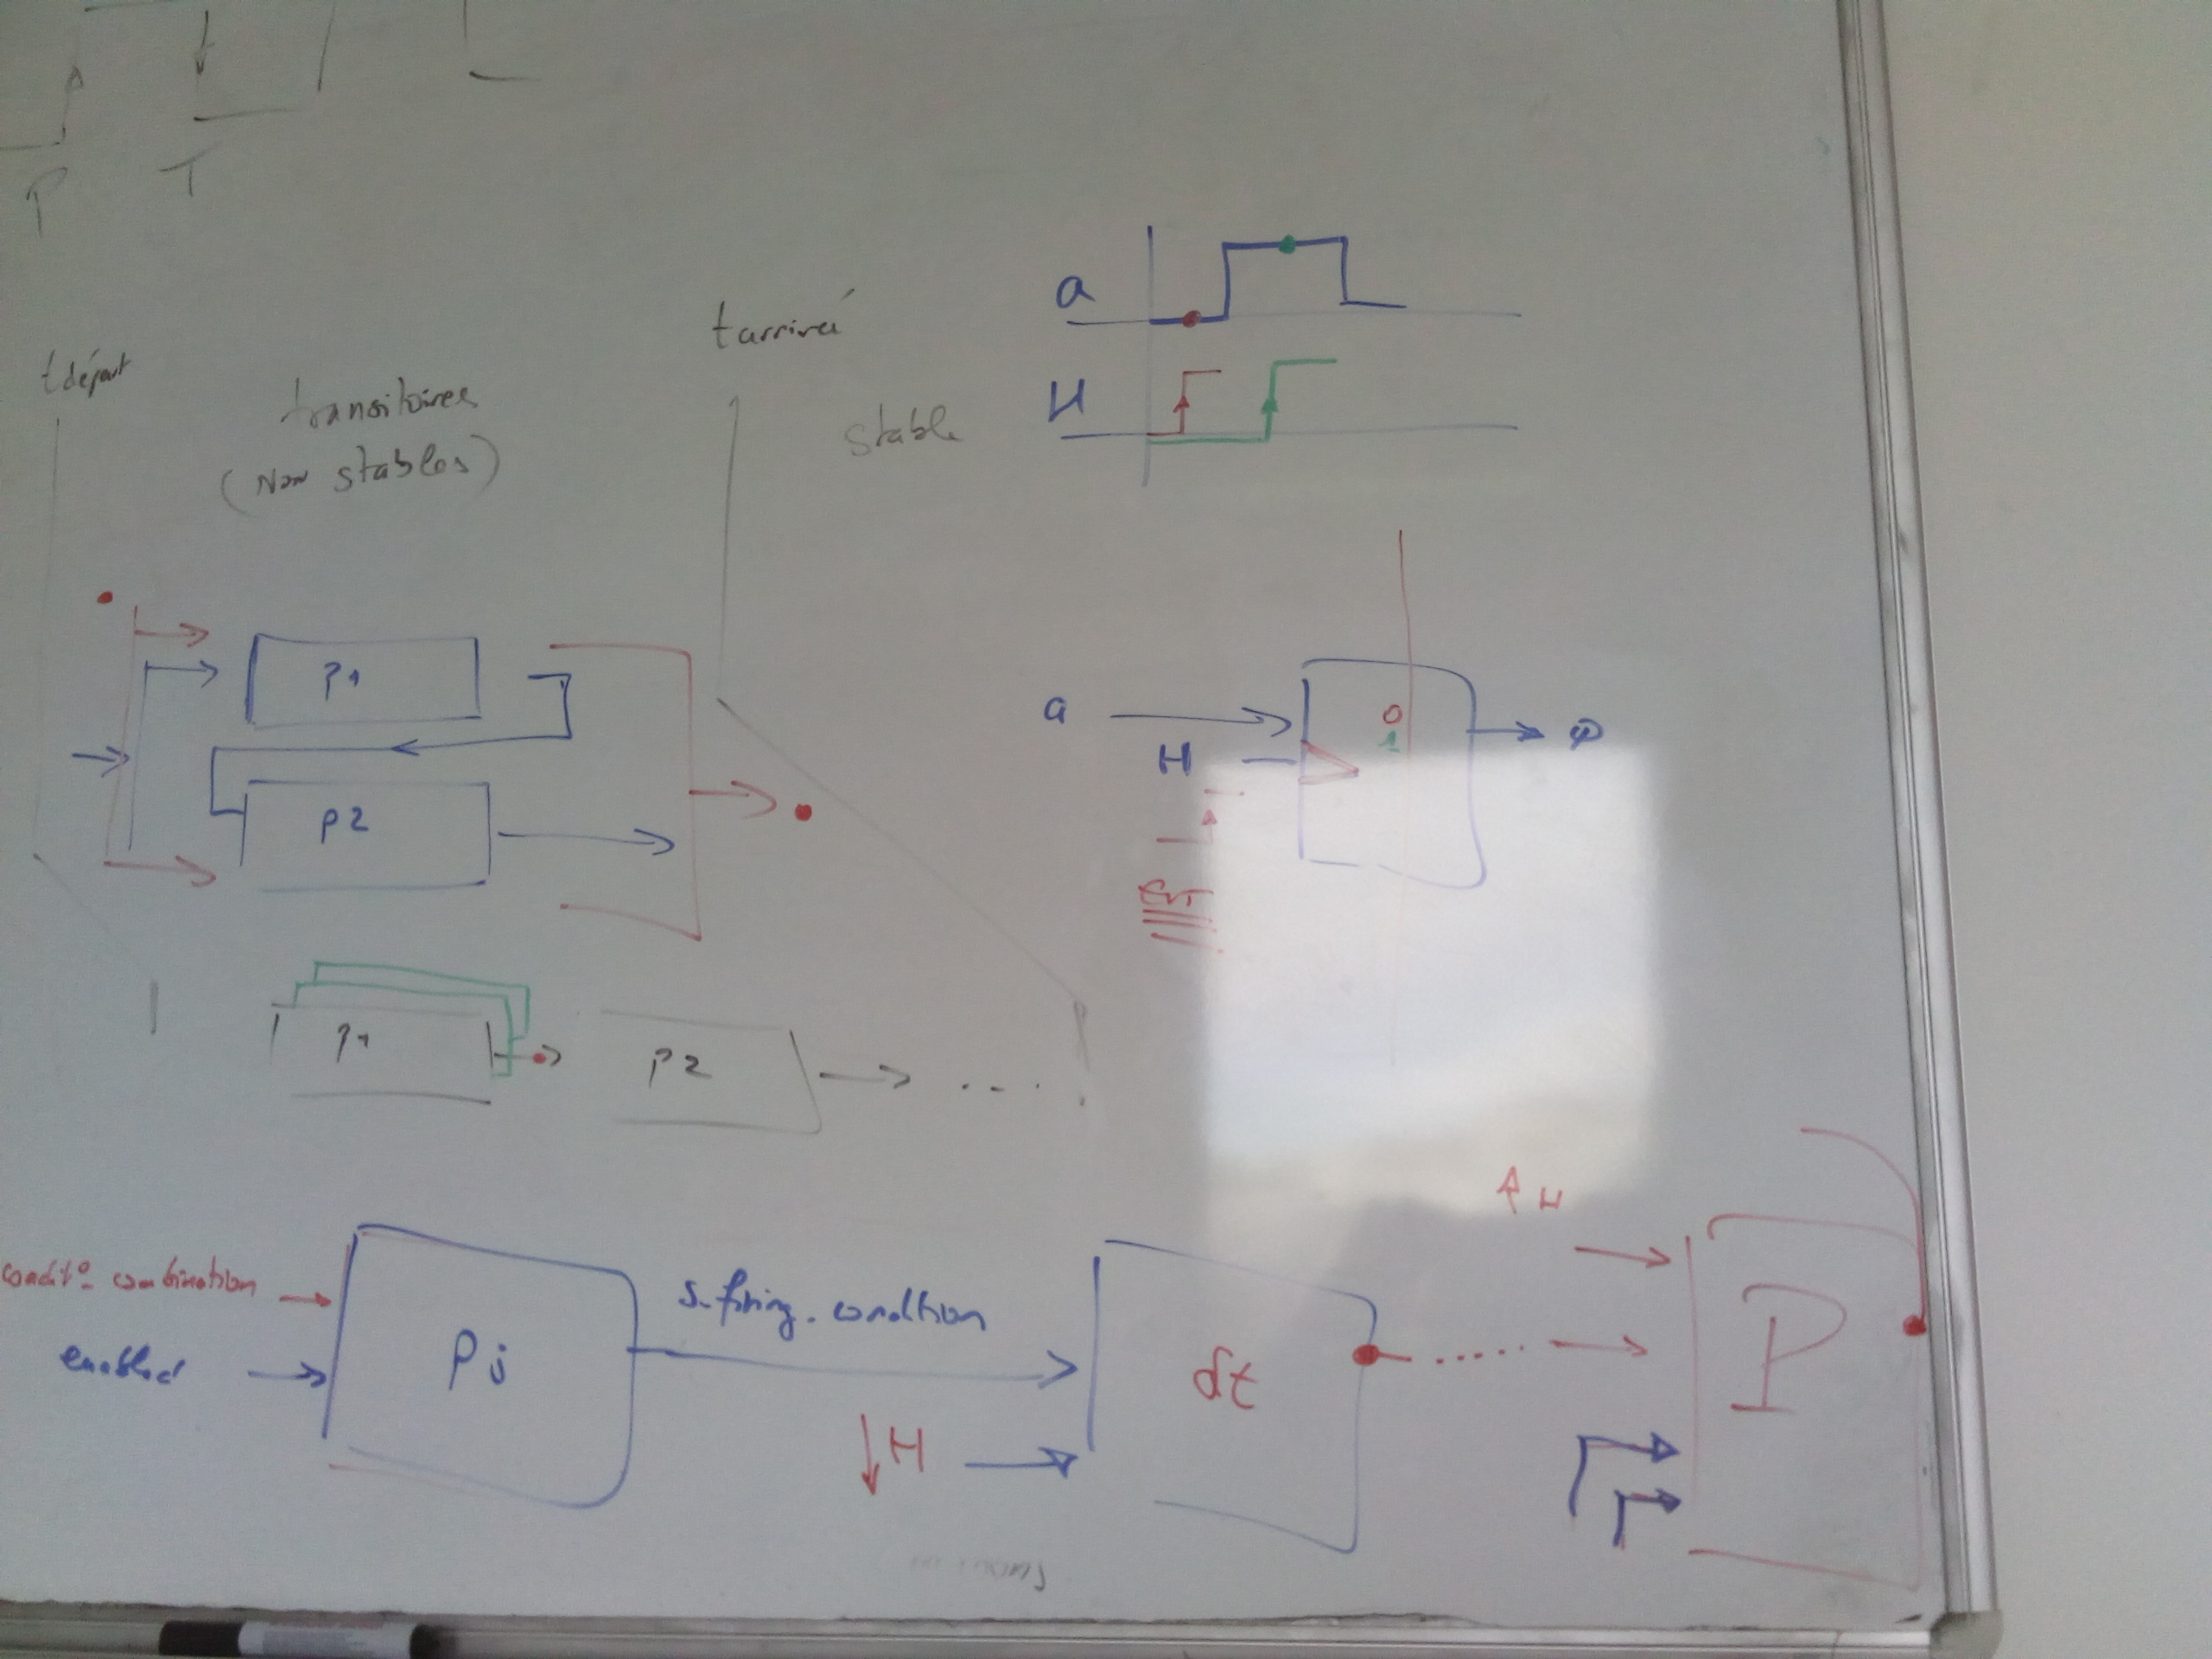 P T
t départ
transitoires
(Non stables)
t arrivé
stable
a
H
P1
P2
a
H
0
1
P1
P2
...
↑ H
condit° combination
enabled
Pj
s_firing_condition
↓ H
dt
P